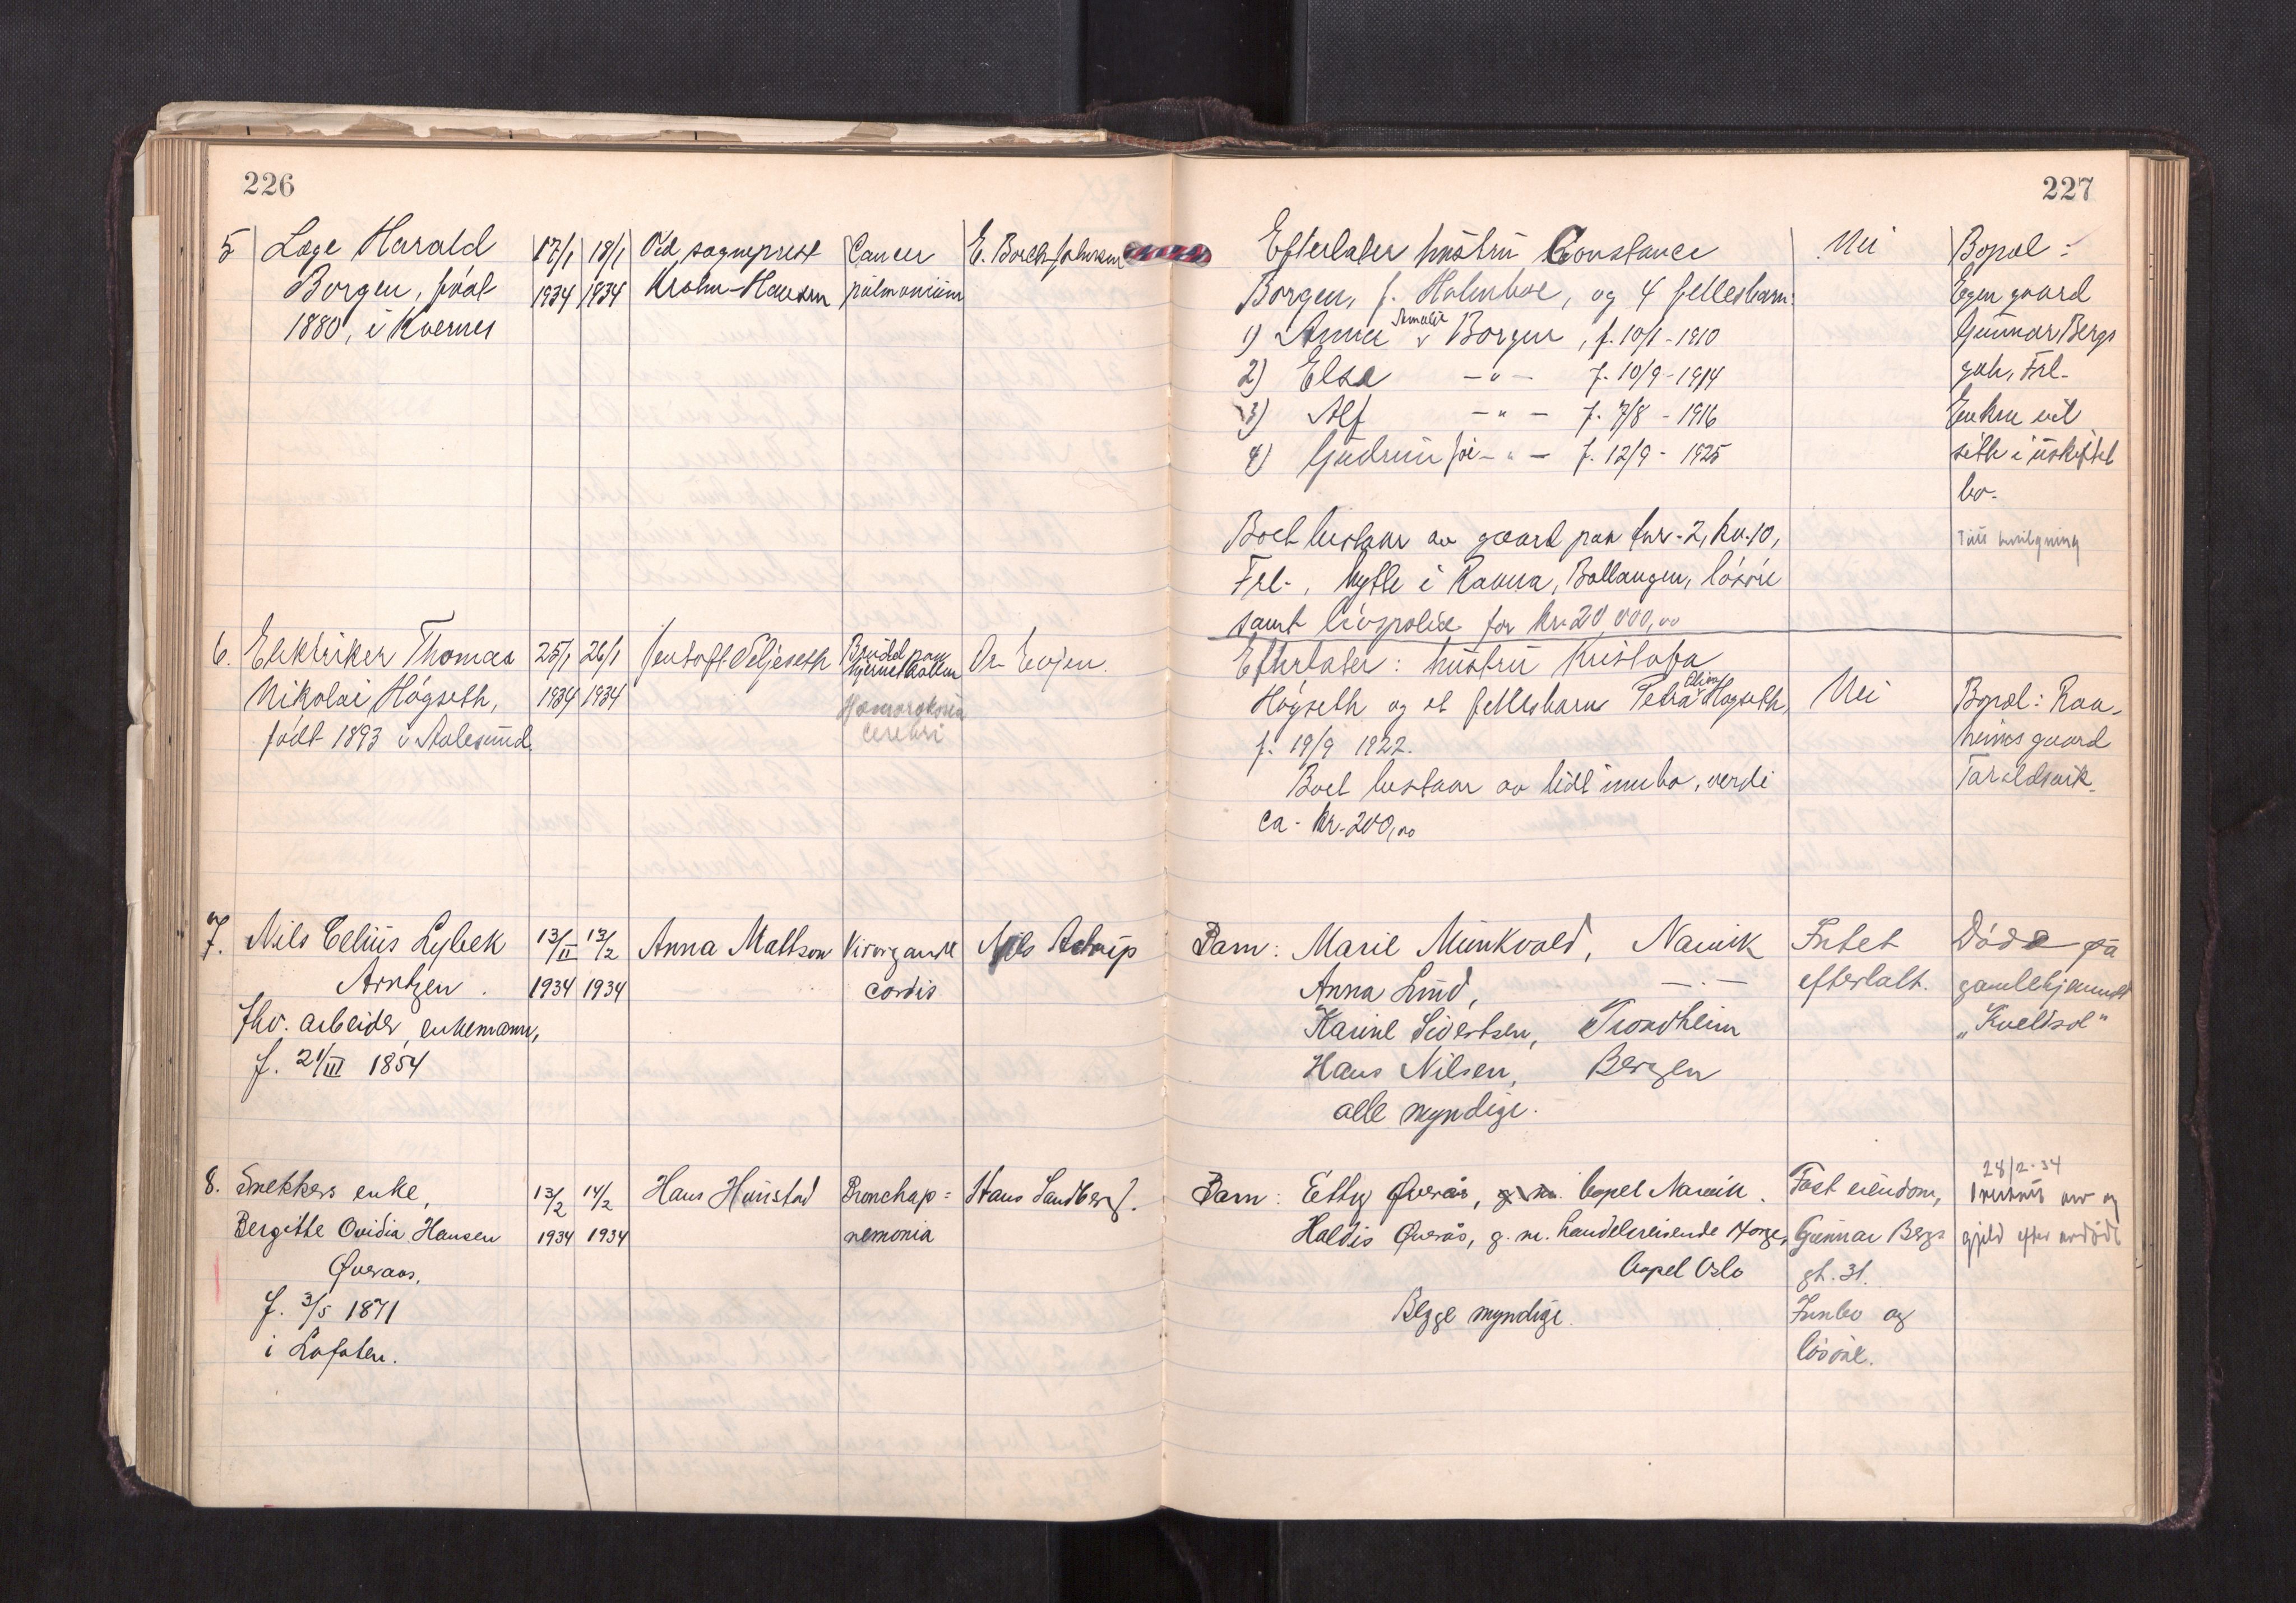 226
5 Læge Harald 17/1 18/1 sogneprest Cancer E. Borch-Johnsen
Borgen, født 1934 1934 Krohn-Hansen pulmonium
1880, i Kvernes
6. Elektriker Thomas 25/1 26/1 Jentoft Veljeseth Brudd paa Dr Evjen.
hjerneskallen
Nikolai Høgseth, 1934 1934
født 1893 i Aalesund.
cerebri
7. Nils Celius Lybek 13/II 13/2 Anna Mattson Nils Astrup
Arntzen. 1934 1934 cordis
fhv. arbeider, enkemann,
f. 21/III 1854
8. Snekkers enke, 13/2 14/2 Hans Hunstad Bronchop= Hans Sandberg.
Bergitte Ovidia Hansen 1934 1934 nemonia
Qveraas,
f. 3/5 1871
i Lofoten.
227
Efterlater hustru Constance Nei Bopæl:
Borgen, f. Holmboe, og 4 fellesbarn: Egen gaard
1) Anna Amalie Borgen, f. 10/1 - 1910 Gunnar Bergs
2) Elsa -"- f. 10/9 - 1914 gate, Frl.
3) Alf -"- f. 7/8 - 1916 Enken vil
4) Gudrun -"- f. 12/9 - 1925 sitte i uskiftet
bo.
Boet bestaar av gaard paa fnr. 2, kv. 10,
Frl., hytte i Raana, Ballangen, løsøre
samt livspolice for kr. 20 000,00
Efterlater: hustru Kristofa
Høgseth og et fellesbarn Petra Høgseth, Nei Bopæl: Raa-
f. 19/9 1922. heims gaard
Boet bestaar av lidt innbo, verdi Taraldsvik.
ca. kr. 200,00
Barn: Marie Munkvold, Narvik Intet Døde på
Anna Lund, -"- efterlatt. gamlehjemmet
Karine Sivertsen, Trondheim "Kveldsol"
Hans Nilsen, Bergen
alle myndige.
28/2-34
Barn: Etty Qverås, bopel Narvik. Fast eiendom, arv og
Haldis Qverås, g. m. handelsreisende Gunnar Bergs gjeld efter avdøde
bopel Oslo gt. 31.
Begge myndige. Innbo og
løsøre.